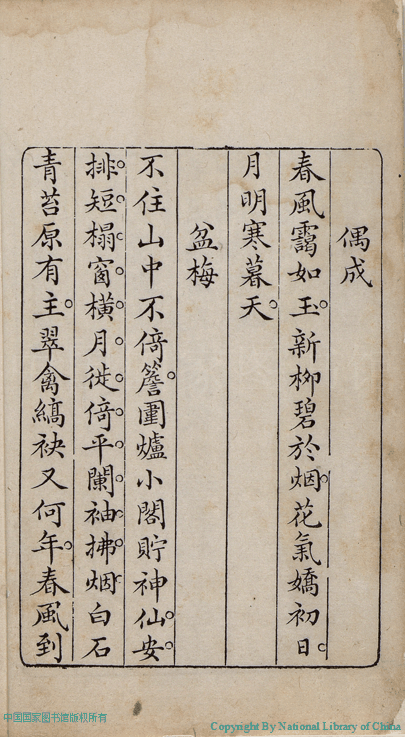 偶成
春風靄如玉新柳碧於烟花氣嬌初日
月明寒暮天
盆梅
不住山中不倚簷圍爐小閣貯神仙安
排短榻窗橫月徙倚平闌袖拂烟白石
青苔原有主翠禽縞袂又何年春風到
中国国家图书馆版权所有
Copyright By National Library of China